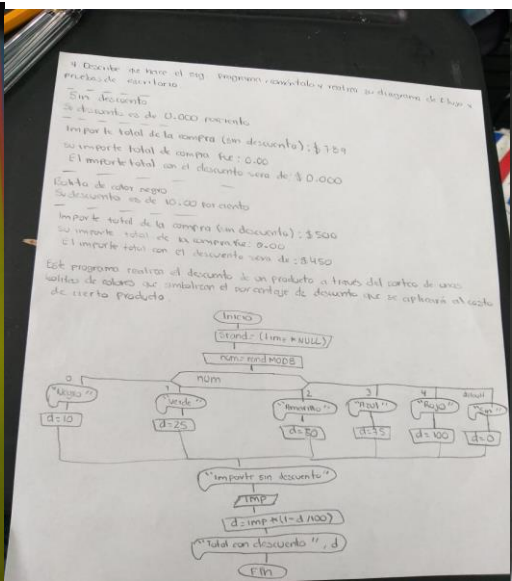 4. Describe que hace el sig. programa, coméntalo y realiza su diagrama de flujo y
pruebas de escritorio
Sin descuento
Su descuento es de 0.000 porciento
Importe total de la compra (sin descuento): $789
su importe total de compra fue: 0.00
El importe total con el descuento sera de: $0.000
Bolita de color negro
Su descuento es de 10.00 por ciento
Importe total de la compra (sin descuento): $500
su importe total de la compra fue: 0.00
El importe total con el descuento sera de: $450
Este programa realiza el descuento de un producto a través del sorteo de unas
bolitas de colores que simbolizan el porcentaje de descuento que se aplicará al costo
de cierto producto.
Inicio
Srand = (time * NULL)
num = rand MOD 8
num
0 1 2 3 4 default
"Negro" "Verde" "Amarillo" "Azul" "Rojo" "Sin"
d=10 d=25 d=50 d=75 d=100 d=0
"Importe sin descuento"
imp
d=imp*(1-d/100)
"Total con descuento", d
Fin